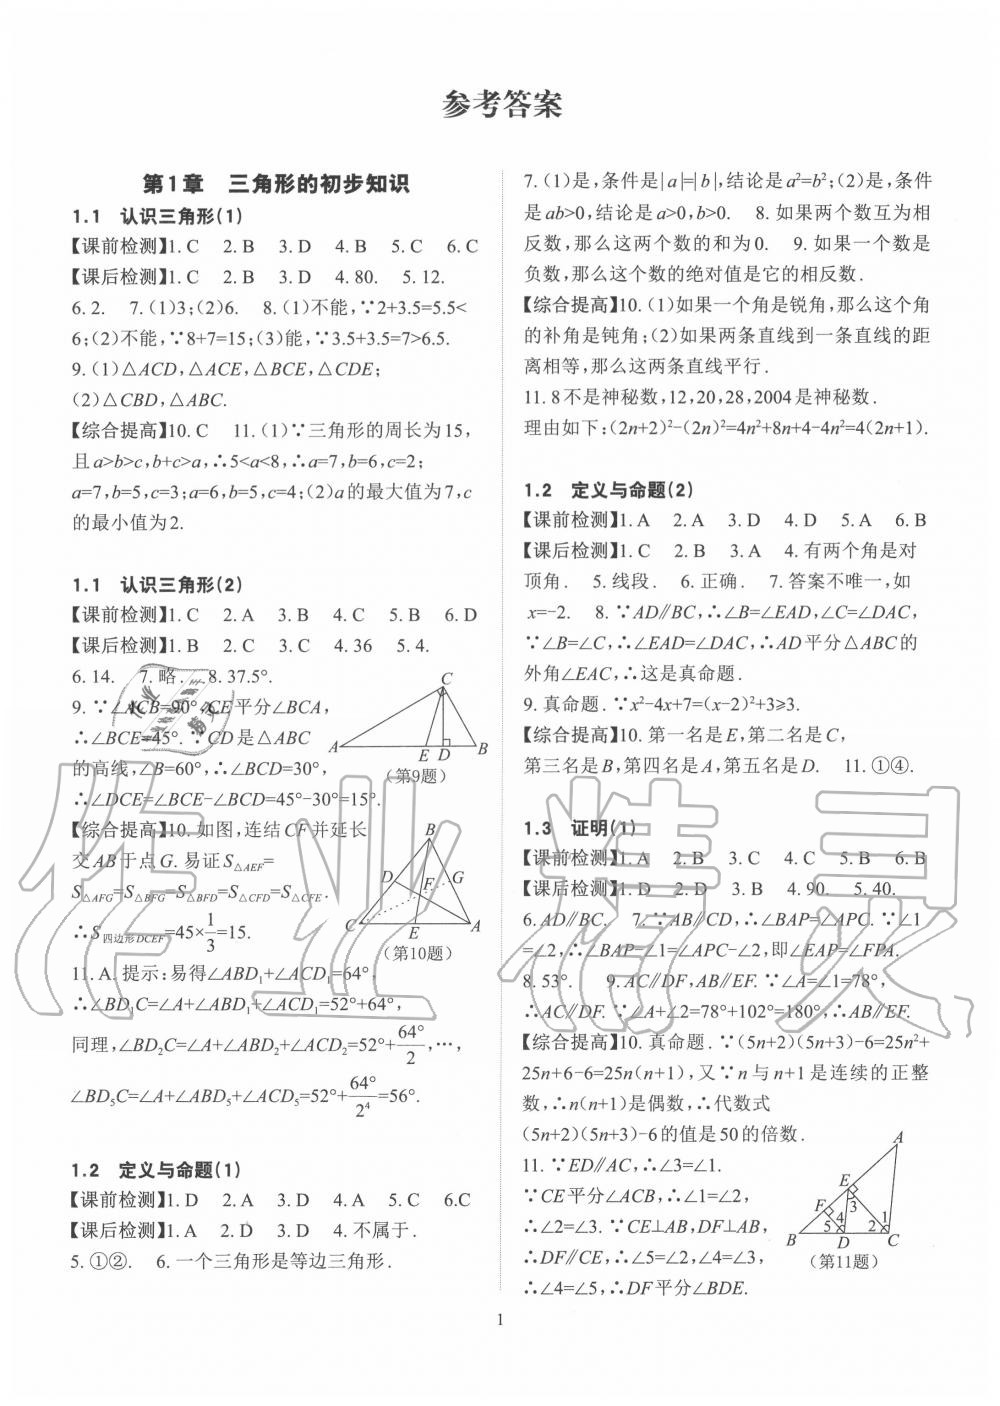 参考答案
第1章 三角形的初步知识
1.1 认识三角形(1)
【课前检测】1. C 2. B 3. D 4. B 5. C 6. C
【课后检测】1. C 2. B 3. D 4. 80. 5. 12.
6. 2. 7. (1)3;(2)6. 8. (1)不能,∵2+3.5=5.5<
6;(2)不能,∵8+7=15;(3)能,∵3.5+3.5=7>6.5.
9. (1)△ACD,△ACE,△BCE,△CDE;
(2)△CBD,△ABC.
【综合提高】10. C 11. (1)∵三角形的周长为15,
且a>b>c,b+c>a,∴5<a<8,∴a=7,b=6,c=2;
a=7,b=5,c=3;a=6,b=5,c=4;(2)a的最大值为7,c
的最小值为2.
1.1 认识三角形(2)
【课前检测】1. C 2. A 3. B 4. C 5. B 6. D
【课后检测】1. B 2. C 3. C 4. 36 5. 4.
6. 14. 7. 略. 8. 37.5°.
9. ∵∠ACB=90°,CE平分∠BCA,
∴∠BCE=45°. ∵CD是△ABC
的高线,∠B=60°,∴∠BCD=30°,
∴∠DCE=∠BCE-∠BCD=45°-30°=15°.
C
A
E D
B
(第9题)
【综合提高】10. 如图,连结CF并延长
交AB于点G. 易证S△AEF=
S△AFG=S△BFG=S△BFD=S△CFD=S△CFE.
∴S四边形DCEF=45×1/3=15.
B
D
F
G
C
E
A
(第10题)
11. A. 提示:易得∠ABD₁+∠ACD₁=64°,
∴∠BD₁C=∠A+∠ABD₁+∠ACD₁=52°+64°,
同理,∠BD₂C=∠A+∠ABD₂+∠ACD₂=52°+64°/2,…,
∠BD₅C=∠A+∠ABD₅+∠ACD₅=52°+64°/2⁴=56°.
1.2 定义与命题(1)
【课前检测】1. D 2. A 3. D 4. A 5. C 6.C
【课后检测】1. A 2. D 3. D 4. 不属于.
5. ①②. 6. 一个三角形是等边三角形.
7. (1)是,条件是|a|=|b|,结论是a²=b²;(2)是,条件
是ab>0,结论是a>0,b>0. 8. 如果两个数互为相
反数,那么这两个数的和为0. 9. 如果一个数是
负数,那么这个数的绝对值是它的相反数.
【综合提高】10. (1)如果一个角是锐角,那么这个角
的补角是钝角;(2)如果两条直线到一条直线的距
离相等,那么这两条直线平行.
11. 8不是神秘数,12,20,28,2004是神秘数.
理由如下:(2n+2)²-(2n)²=4n²+8n+4-4n²=4(2n+1).
1.2 定义与命题(2)
【课前检测】1. A 2. A 3. D 4. D 5. A 6. B
【课后检测】1. C 2. B 3. A 4. 有两个角是对
顶角. 5. 线段. 6. 正确. 7. 答案不唯一,如
x=-2. 8. ∵AD∥BC,∴∠B=∠EAD,∠C=∠DAC,
∵∠B=∠C,∴∠EAD=∠DAC,∴AD平分△ABC的
外角∠EAC,∴这是真命题.
9. 真命题. ∵x²-4x+7=(x-2)²+3≥3.
【综合提高】10. 第一名是E,第二名是C,
第三名是B,第四名是A,第五名是D. 11. ①④.
1.3 证明(1)
【课前检测】1. A 2. B 3. C 4. C 5. B 6. B
【课后检测】1. D 2. D 3. B 4. 90. 5. 40.
6. AD∥BC. 7. ∵AB∥CD,∴∠BAP=∠APC. ∵∠1
=∠2,∴∠BAP-∠1=∠APC-∠2,即∠EAP=∠FPA.
8. 53°. 9. AC∥DF,AB∥EF. ∵∠A=∠1=78°,
∴AC∥DF. ∵∠A+∠2=78°+102°=180°,∴AB∥EF.
【综合提高】10. 真命题. ∵(5n+2)(5n+3)-6=25n²+
25n+6-6=25n(n+1),又∵n与n+1是连续的正整
数,∴n(n+1)是偶数,∴代数式
(5n+2)(5n+3)-6的值是50的倍数.
11. ∵ED∥AC,∴∠3=∠1.
∵CE平分∠ACB,∴∠1=∠2,
∴∠2=∠3. ∵CE⊥AB,DF⊥AB,
∴DF∥CE,∴∠5=∠2,∠4=∠3,
∴∠4=∠5,∴DF平分∠BDE.
A
E
F
3
4
5
1
2
B
D
C
(第11题)
1
作业精灵